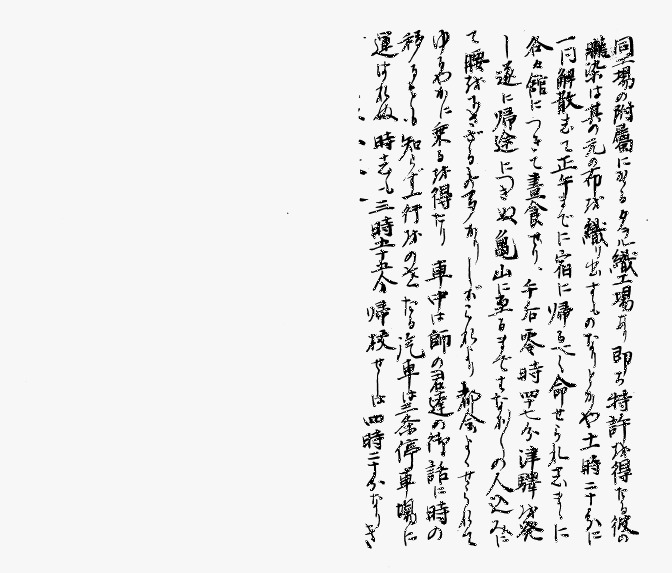 同工場の附属にかゝるタオル織工場あり即ち特許を得たる彼の
朧染は其の元の布を織り出すものなりとかや十一時二十分に
一同解散して正午までに宿に帰るべく命せられしまゝに
各々館につきて晝食せり、午后零時四十七分津驛を発
し遂に帰途につきぬ亀山に至るまではなか〳〵の人込みに
て腰をおろさざるの有り しがこれより都合よくせられて
ゆるやかに乗るを得たり 車中は師の君達の御話に時の
移るをも知らず一行をのせたる汽車は三条停車場に
運ばれぬ 時しも三時五十五分帰校せしは四時二十分なりき